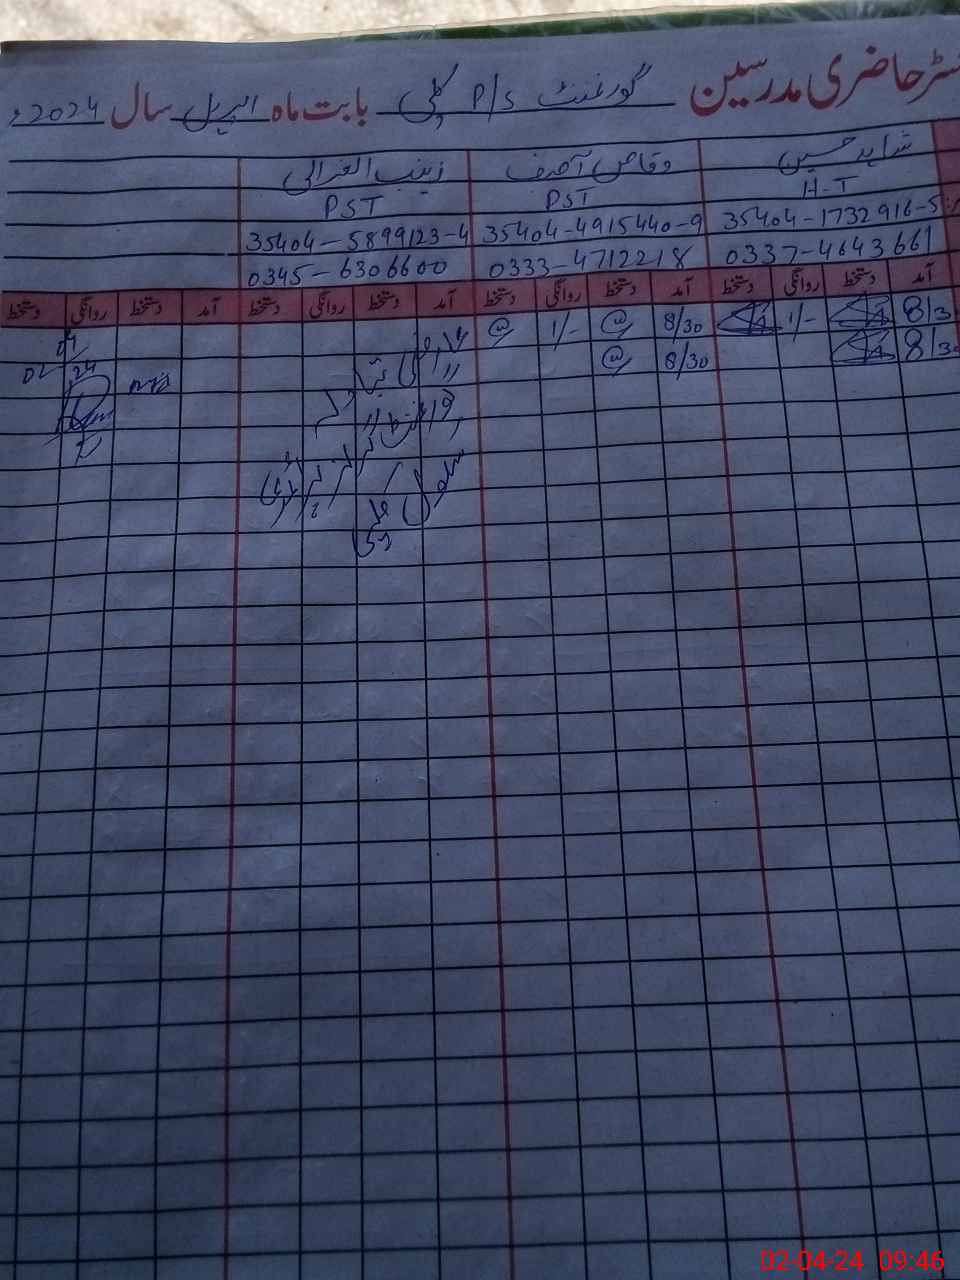 رجسٹر حاضری مدرسین گورنمنٹ P/S کلی بابت ماہ اپریل سال 2024ء
شاہد حسین وقاص آصف زینب الغزالی
H-T PST PST
35404-1732916-5 35404-4915440-9 35404-5899123-4
0337-4643661 0333-4712218 0345-6306600
آمد دستخط روانگی دستخط آمد دستخط روانگی دستخط آمد دستخط روانگی دستخط آمد دستخط روانگی دستخط
8/30 1/- 8/30 @ 1/- @
8/30 8/30 @
عارضی تبادلہ
02-04-24 09:46